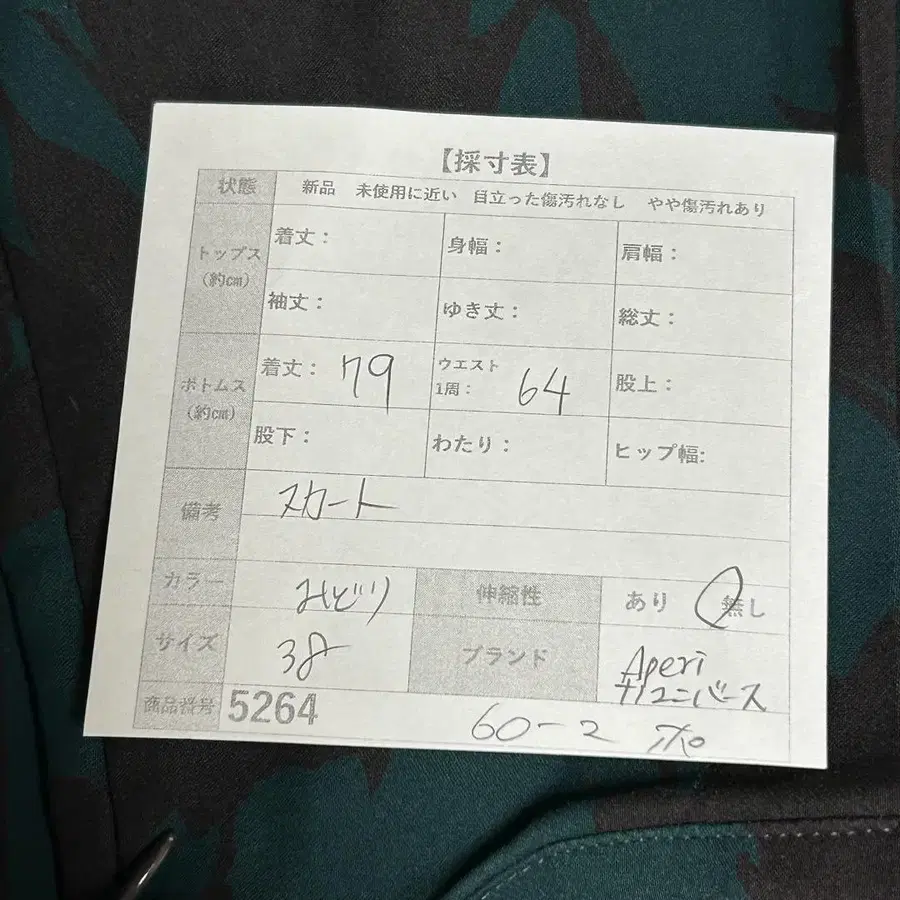 【採寸表】
状態 新品 未使用に近い 目立った傷汚れなし やや傷汚れあり
トップス(約cm) 着丈: 身幅: 肩幅:
袖丈: ゆき丈: 総丈:
ボトムス(約cm) 着丈: 79 ウエスト1周: 64 股上:
股下: わたり: ヒップ幅:
備考 スカート
カラー みどり 伸縮性 あり 無し
サイズ 38 ブランド Aperi
ユニバース
商品番号 5264 60-2